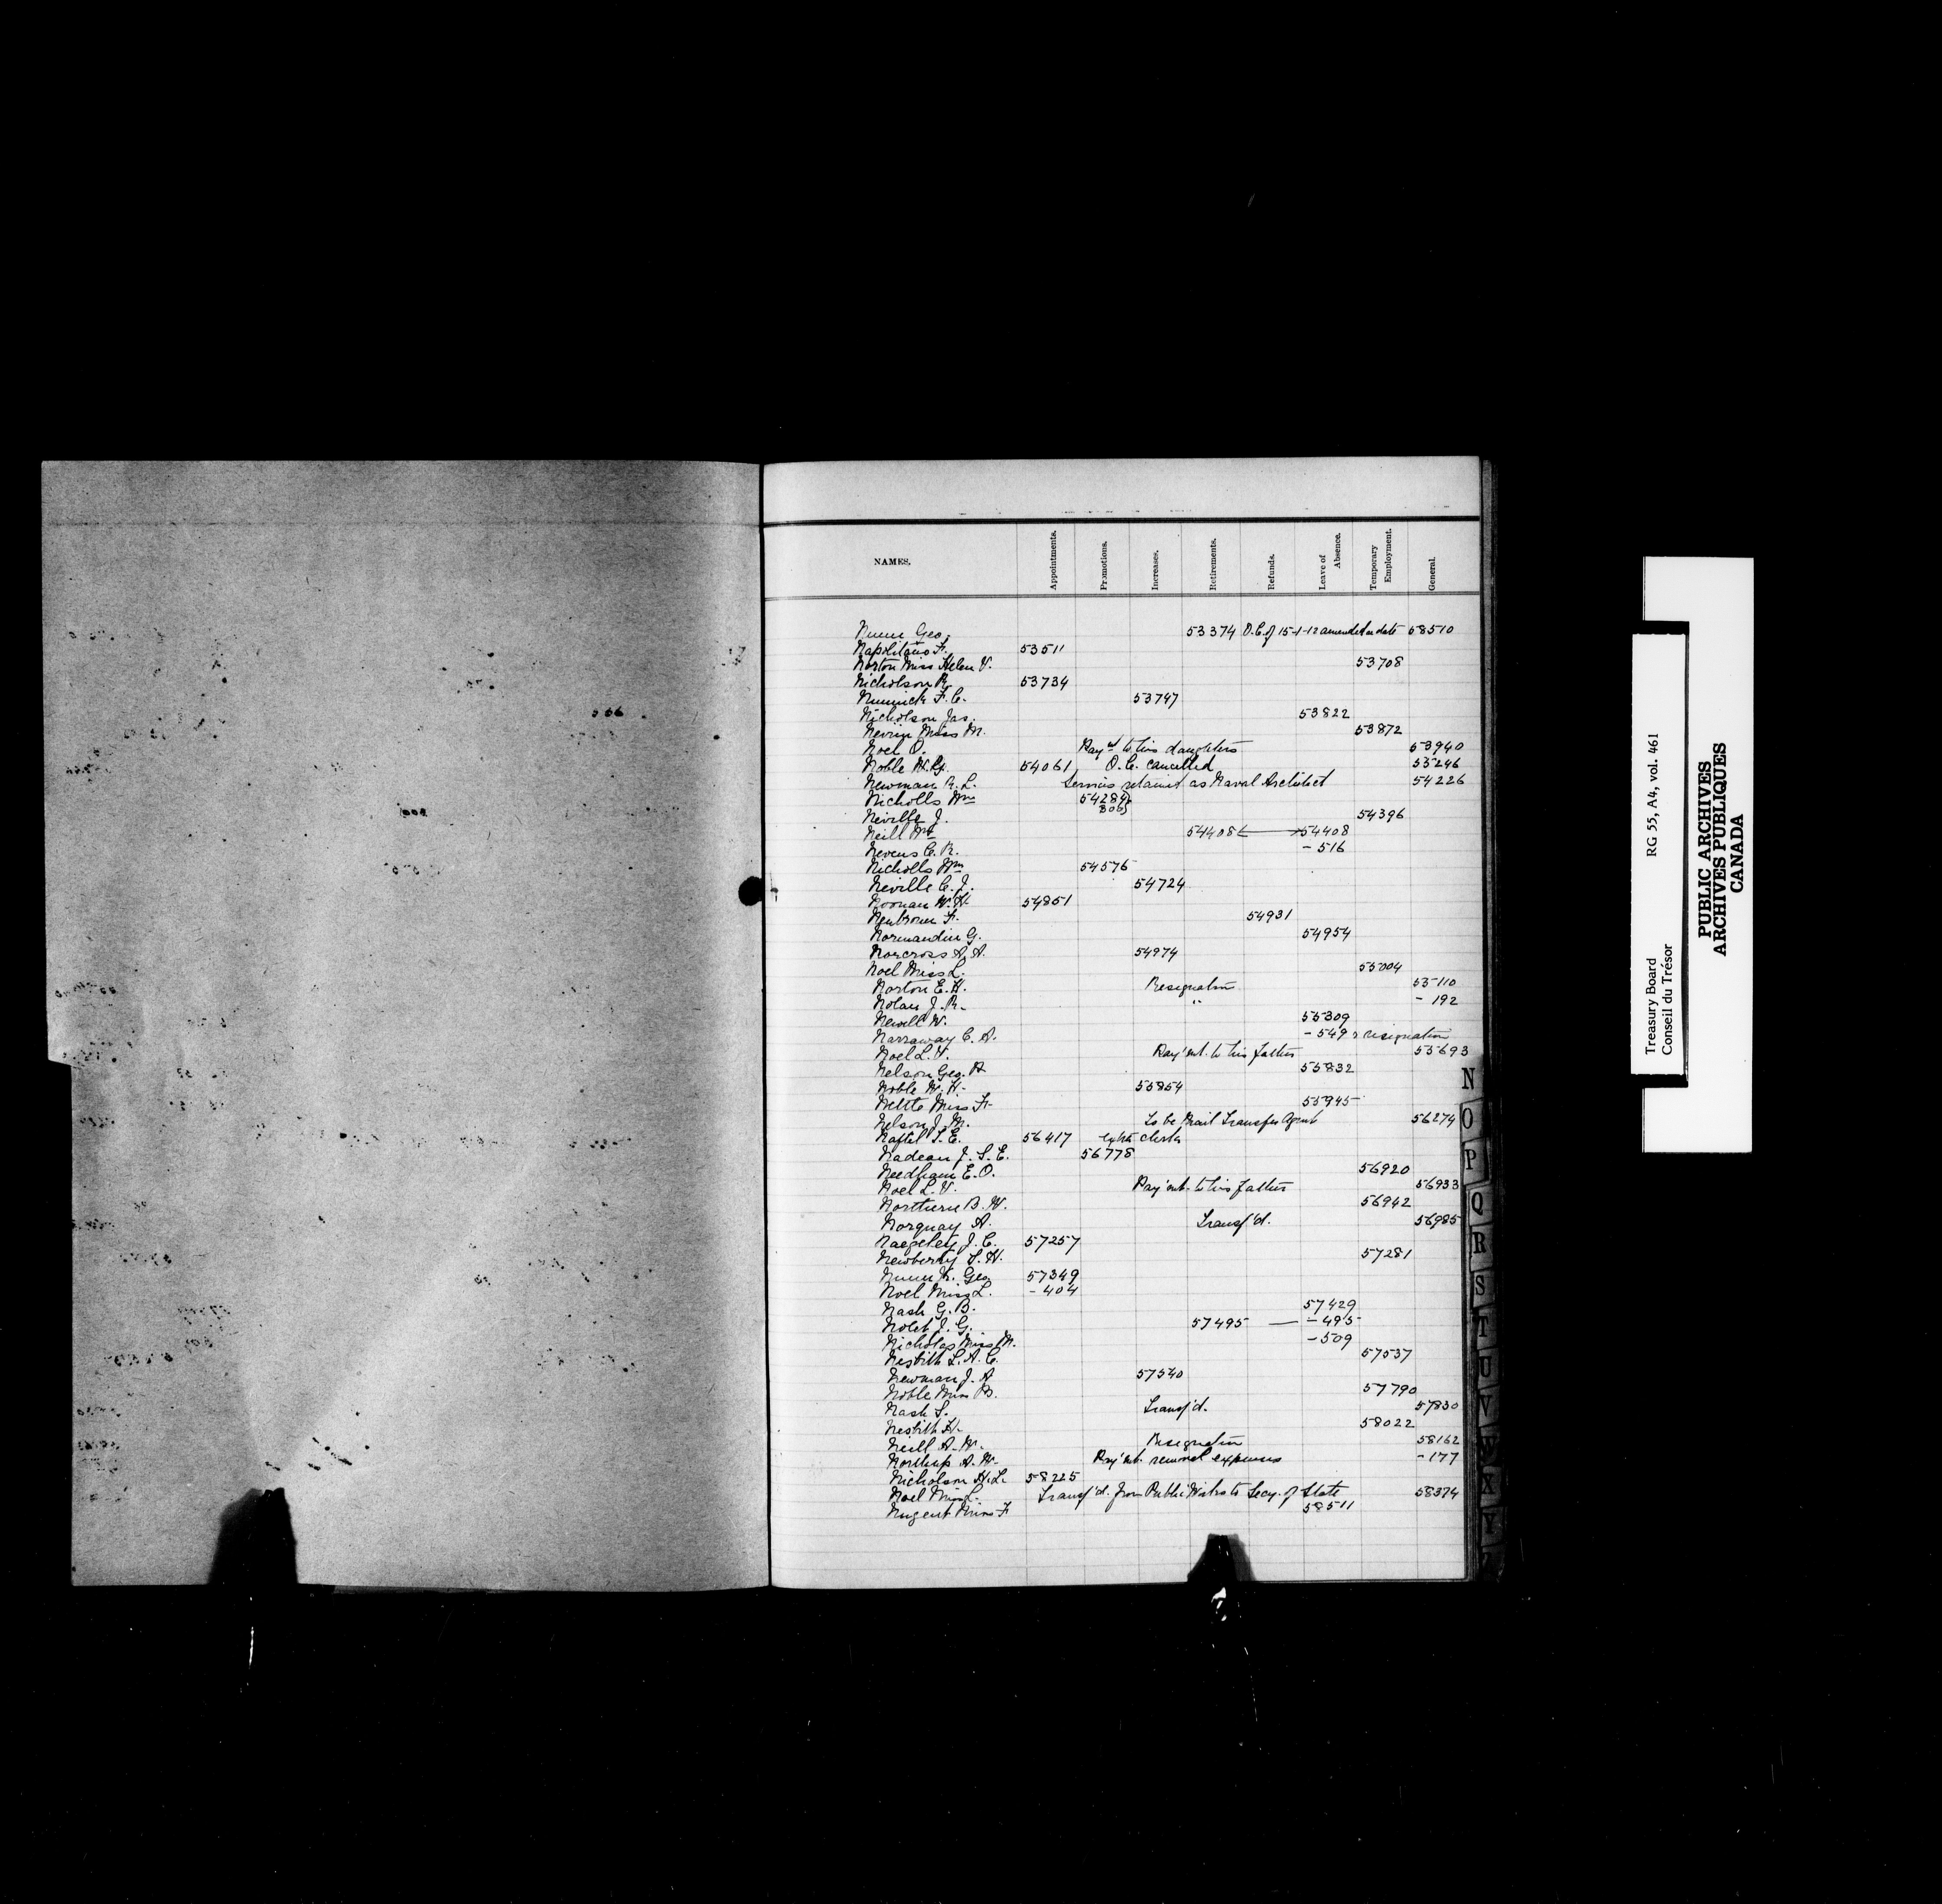 NAMES. Appointments. Promotions. Increases. Retirements. Refunds. Leave of Absence. Temporary Employment. General.
Nunn Geo. 53374 O.C. of 15-1-12 amended as to date 58510
Napolitano F. 53511
Norton Miss Helen V. 53708
Nicholson R. 53734
Minnick F. C. 53747
Nicholson Jas. 53822
Nevin Miss M. 53872
Noel O. Paymt to his daughters 53940
Noble W. 54061 O.C. cancelled 55246
Newman R. L. Services retained as Naval Architect 54226
Nicholls Wm 54284
Neville J. 54396
Neill Wm 54408 54408
Nevens C. R. - 516
Nicholls Wm 54576
Neville C. J. 54724
Noonan W. H. 54851
Newbrown F. 54931
Normandin G. 54954
Norcross A. A. 54974
Noel Miss L. 55004
Norton E. H. Resignation 55110
Nolan J. R. " - 192
Newell W. 55309
Narraway C. A. - 549 & resignation
Noel L. V. Pay'mt. to his father 55693
Nelson Geo. A 55832
Noble W. H. 55854
Nettle Miss F. 55945
Nelson J. M. To be Mail Transfer Agent 56274
Naftel T. E. 56417 extra clerk
Nadeau J. S. E. 56778
Needham E. O. 56920
Noel L. V. Pay'mt. to his father 56933
Northern B. W. 56942
Norquay A. Transf'd. 56985
Naegeley J. C. 57257
Newberry S. H. 57281
Nunn K. Geo. 57349
Noel Miss L. - 404
Nash G. B. 57429
Nolet J. G. 57495 — - 495
Nicholas Miss M. - 509
Nesbitt L. A. C. 57537
Newman J. A 57540
Noble Miss B. 57790
Nash S. Transf'd. 57830
Nesbitt H. 58022
Neill A. W. Resignation 58162
Northup A. W. Pay'mt. removal expenses - 177
Nicholson H. L. 58225
Noel Miss L. Transf'd. from Public Works to Secy. of State 58374
Nugent Miss F 58511
N
O
P
Q
R
S
T
U
V
W
X
Y
Z
Treasury Board RG 55, A4, vol. 461
Conseil du Trésor
PUBLIC ARCHIVES
ARCHIVES PUBLIQUES
CANADA